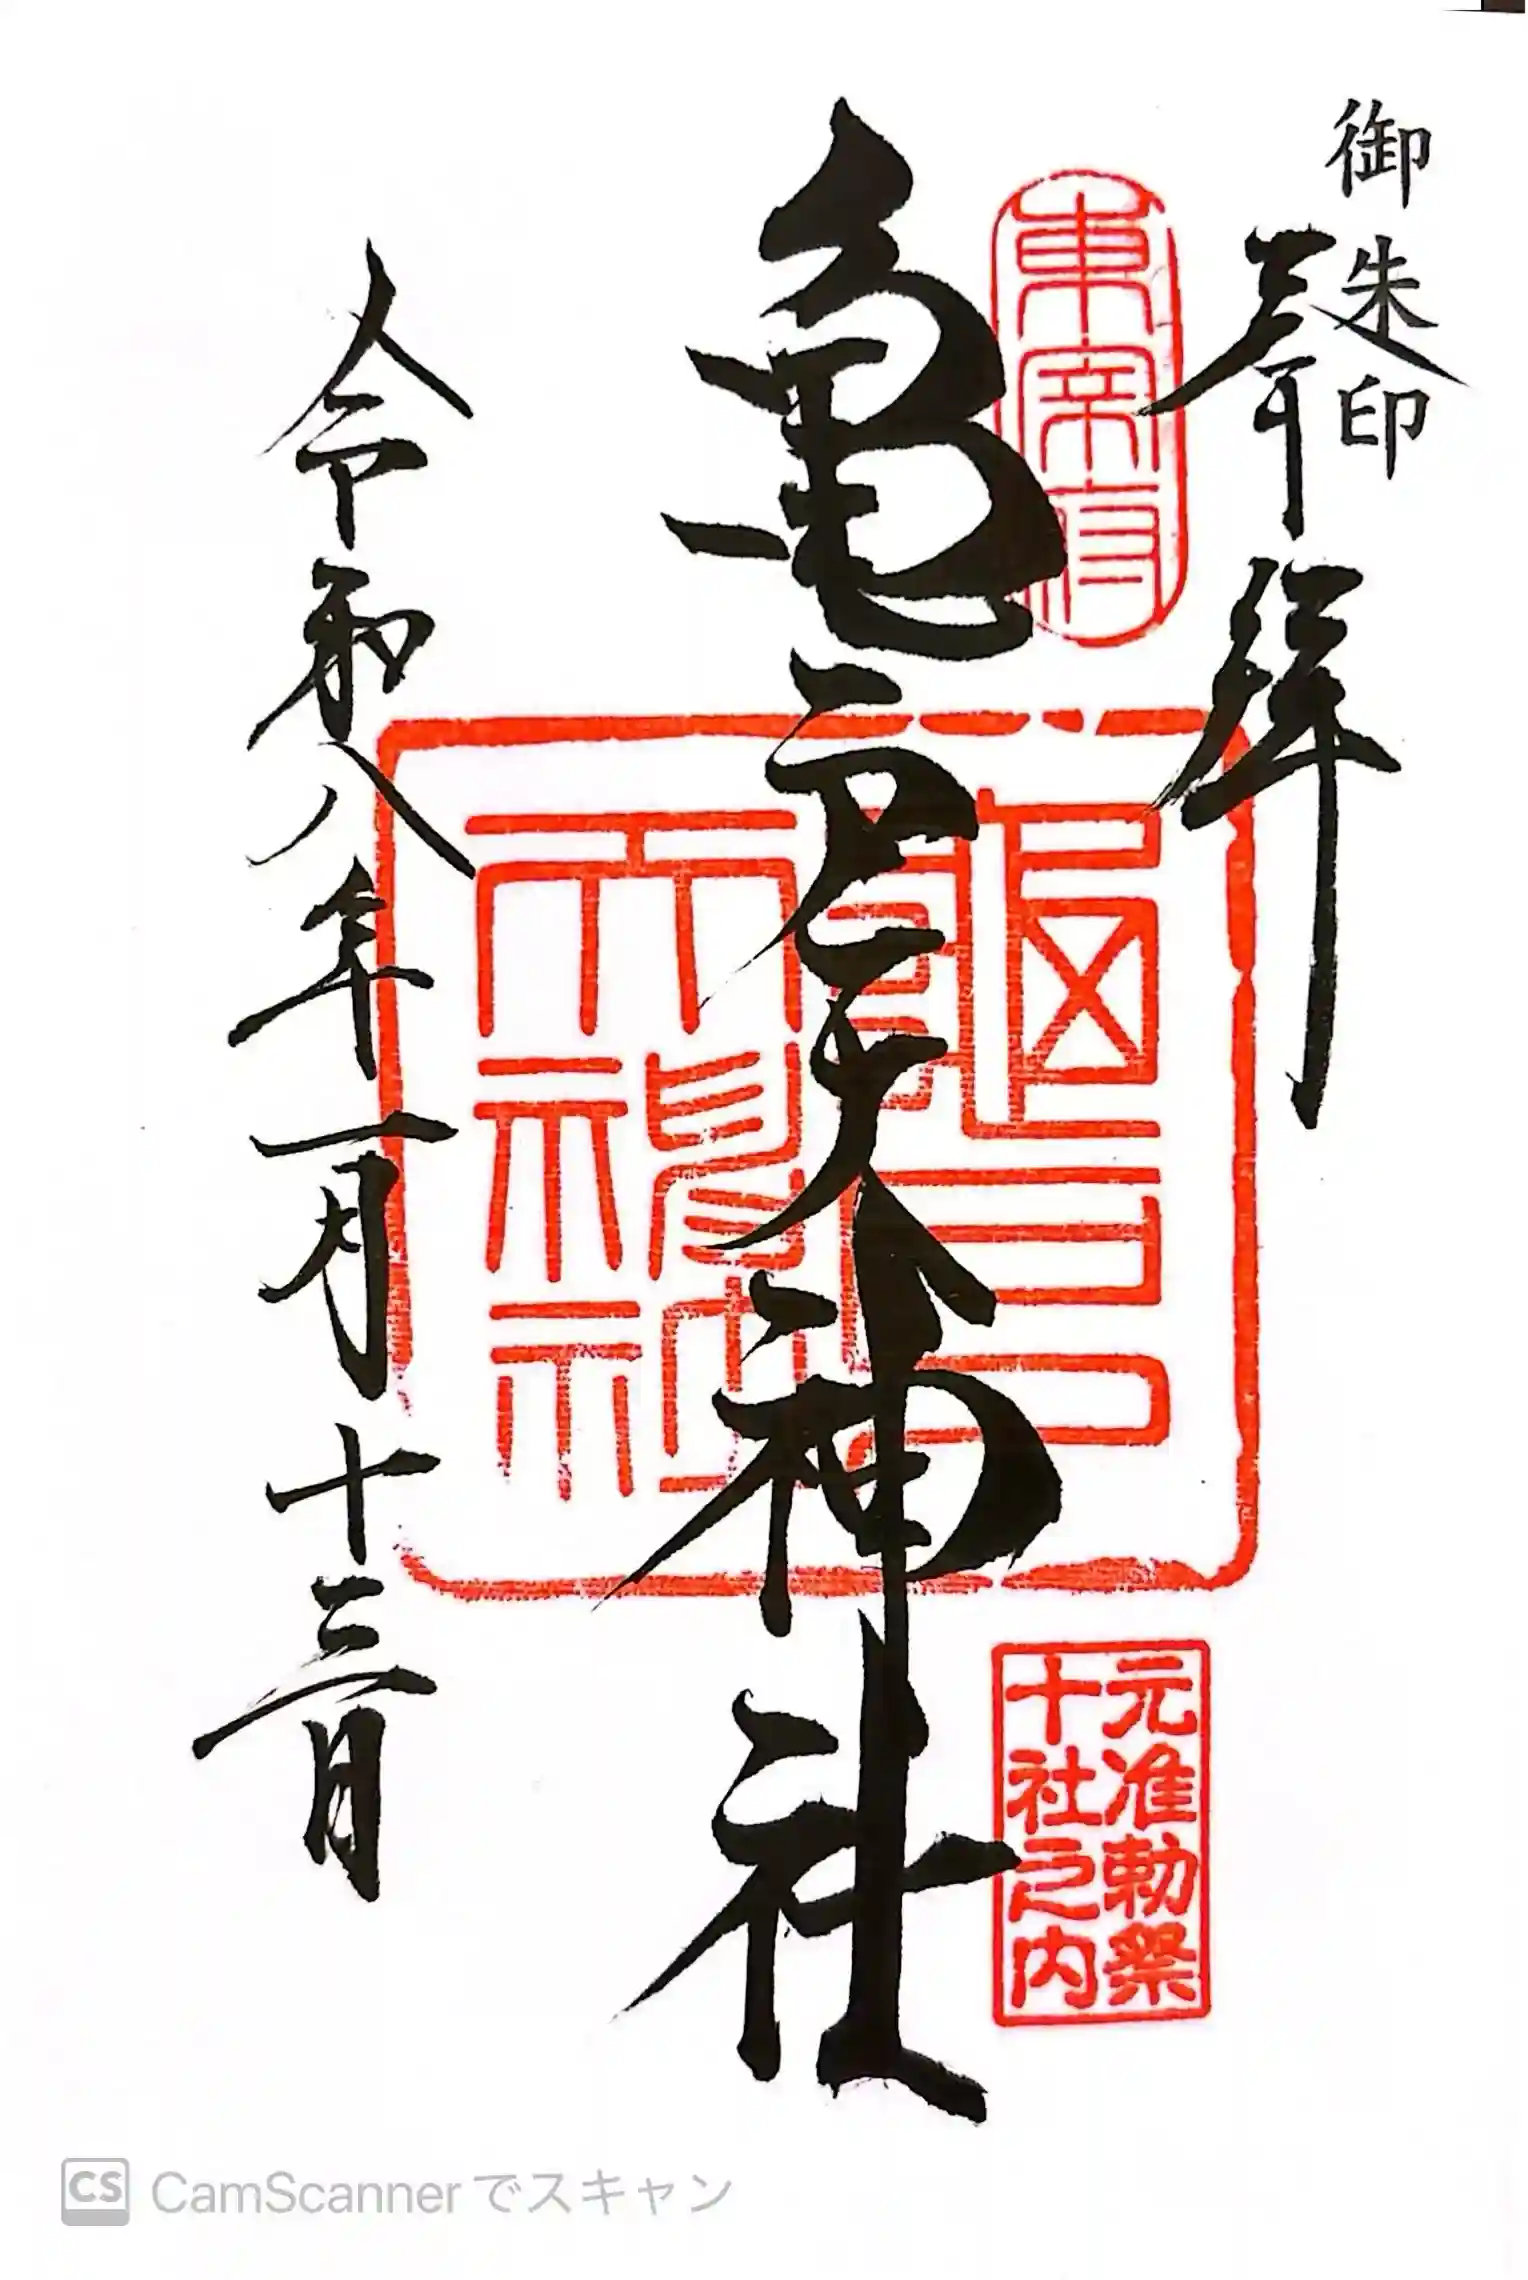 御朱印
奉拝
東宰府
亀戸天神社
龜戸天神社
元准勅祭
十社之内
令和八年一月十三日
CS CamScannerでスキャン